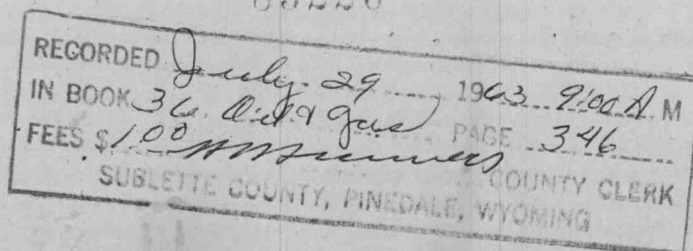 RECORDED July 29 1963 9:00 A M
IN BOOK 36 Oil & Gas PAGE 346
FEES $1.00 COUNTY CLERK
SUBLETTE COUNTY, PINEDALE, WYOMING